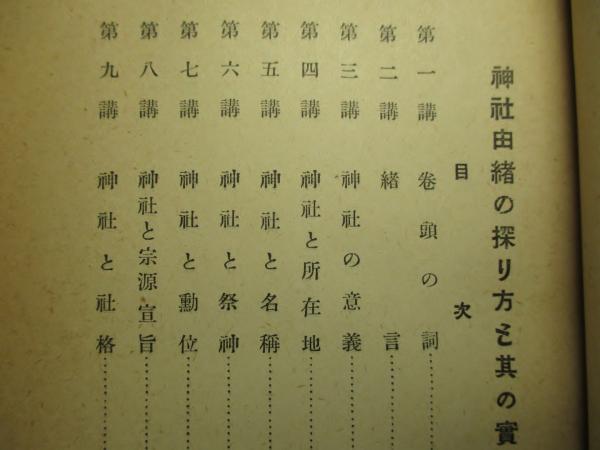 神社由緒の探り方と其の實
目次
第一講 卷頭の詞
第二講 緒言
第三講 神社の意義
第四講 神社と所在地
第五講 神社と名稱
第六講 神社と祭神
第七講 神社と勳位
第八講 神社と宗源宣旨
第九講 神社と社格